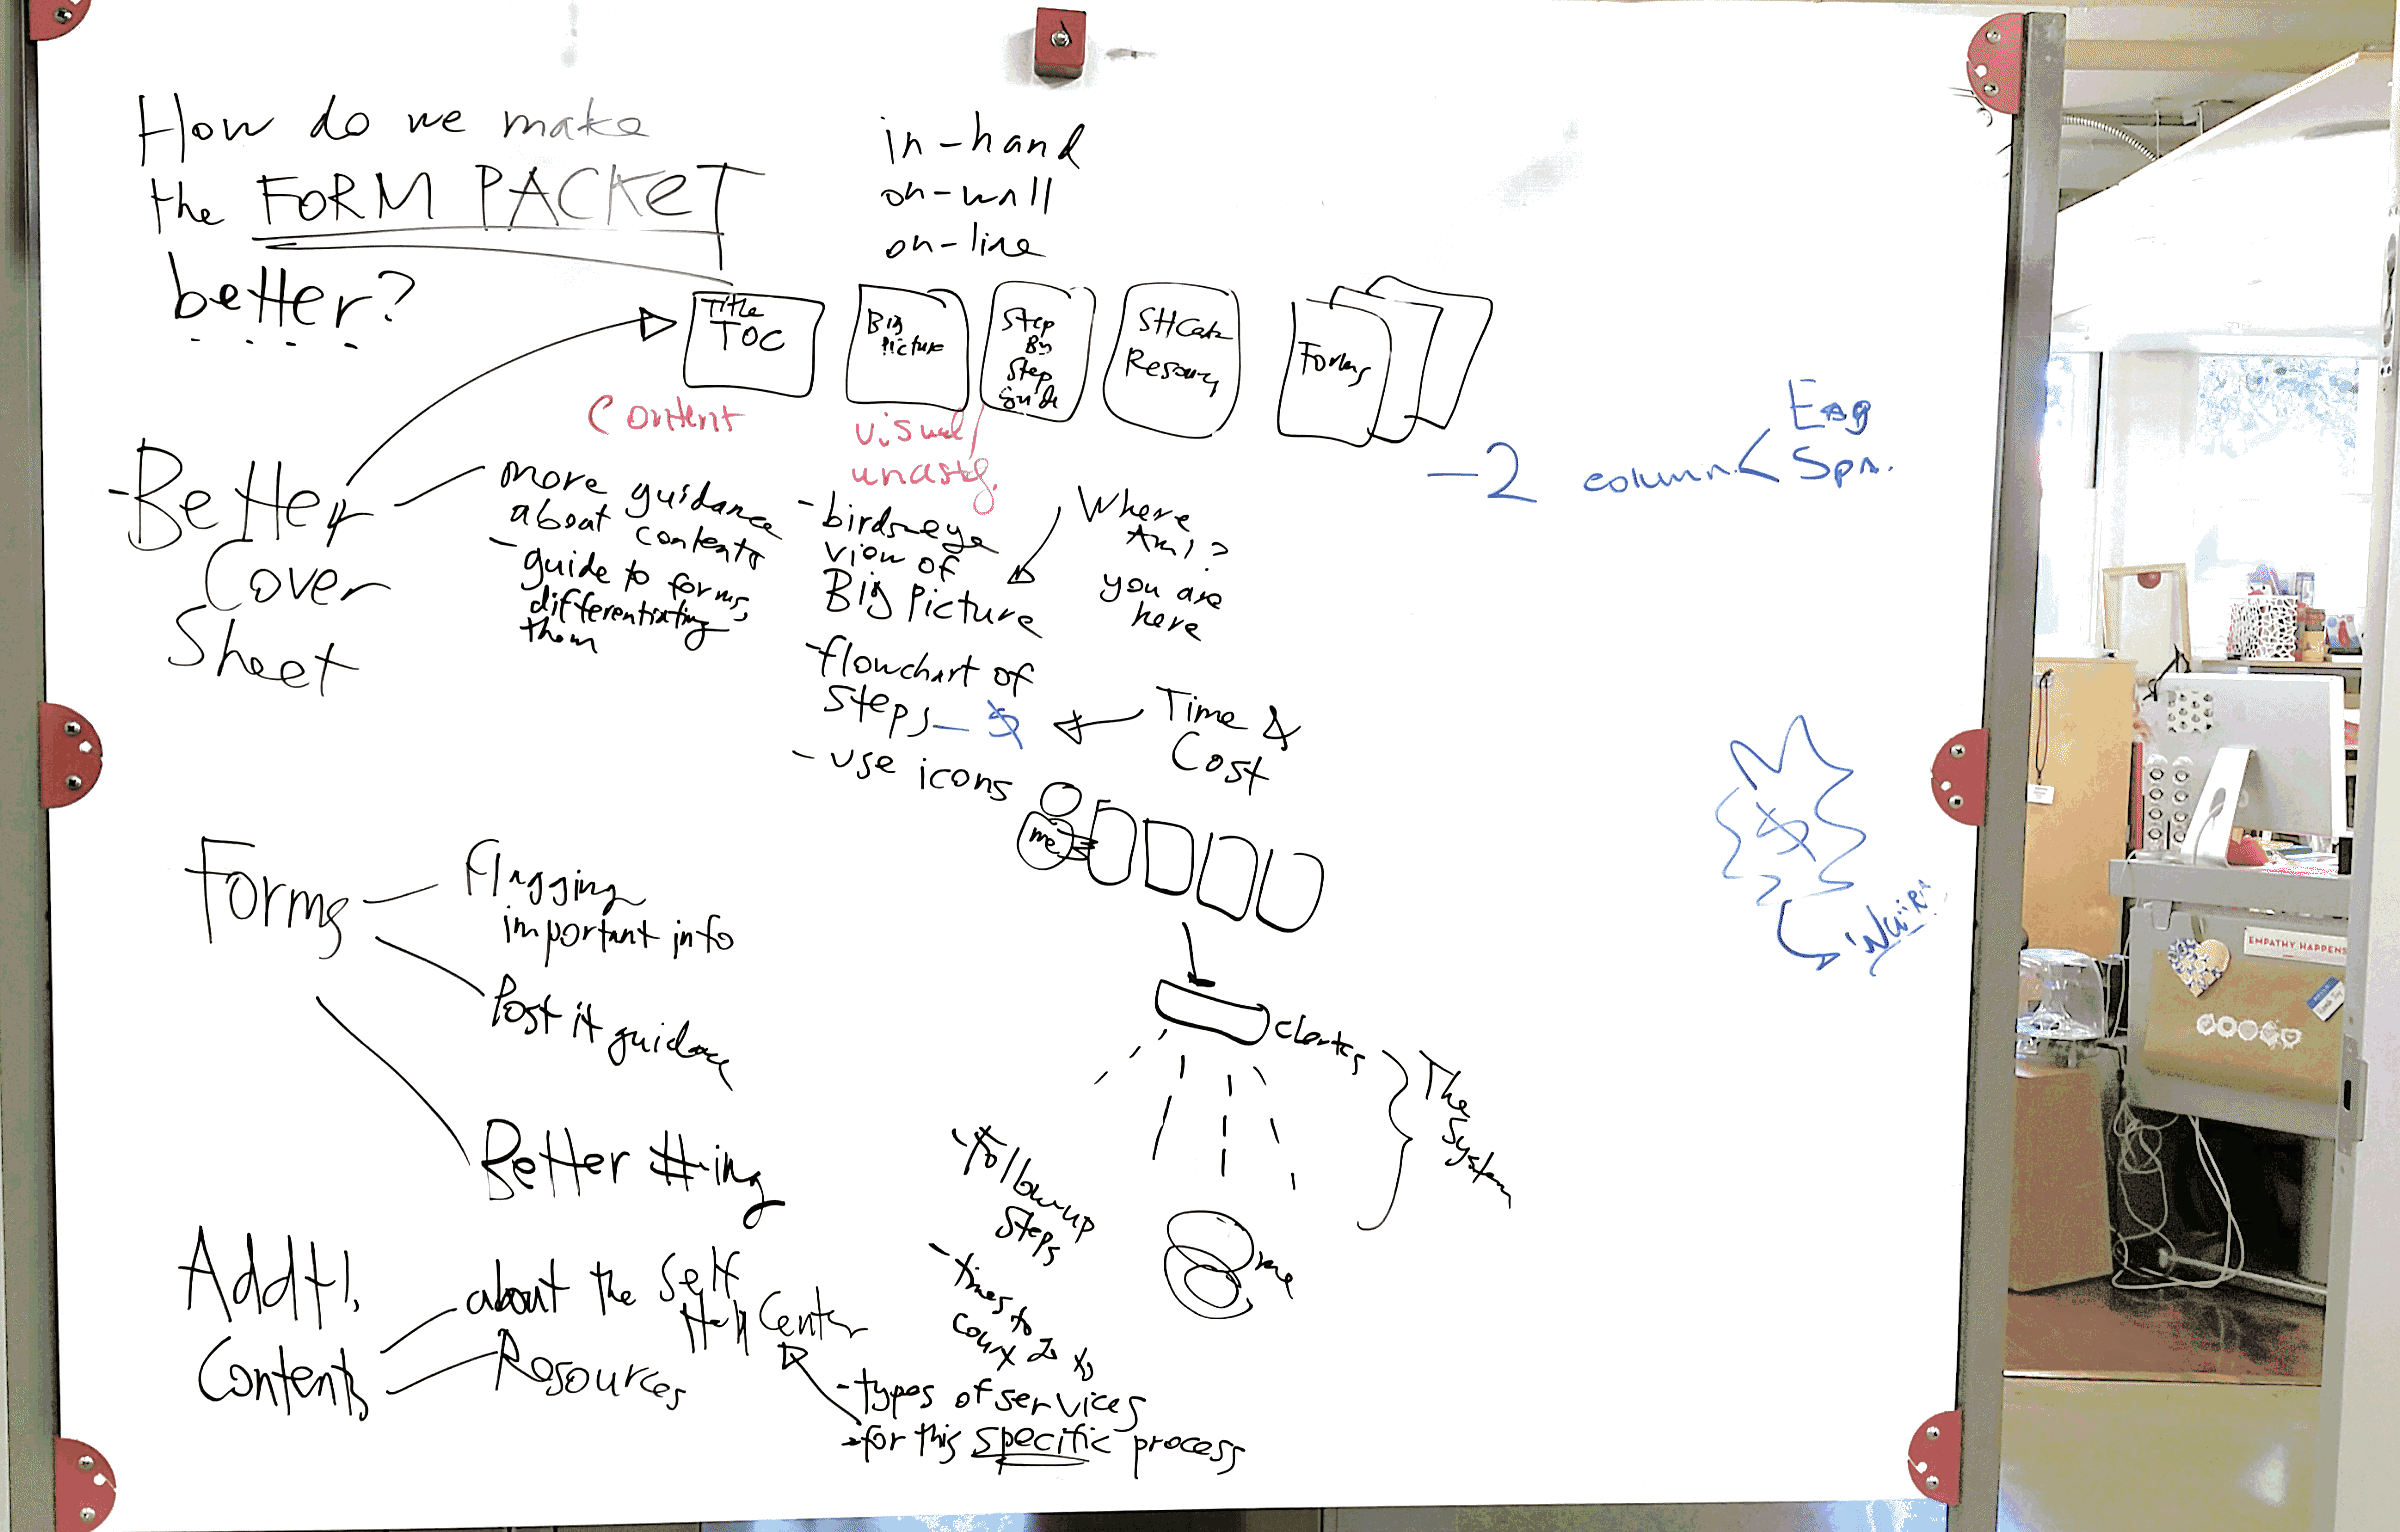 How do we make
the FORM PACKET
better?
in-hand
on-wall
on-line
Title
TOC
Big
Picture
Step
By
Step
Guide
Forms
content
visual
- 2 column
Eng
Span.
- Better
Cover
Sheet
more guidance
about contents
- guide to forms,
differentiating
them
- birdseye
view of
Big Picture
- flowchart of
steps - $
- use icons
Where
Am I?
you are
here
Time &
Cost
me
Forms
Flagging
important info
Post it guidance
Better #ing
clerks
The
System
me
$
- Followup
Steps
- times to
Addtl.
Contents
about the Self
Help Center
Resources
- types of services
for this specific process
EMPATHY HAPPENS